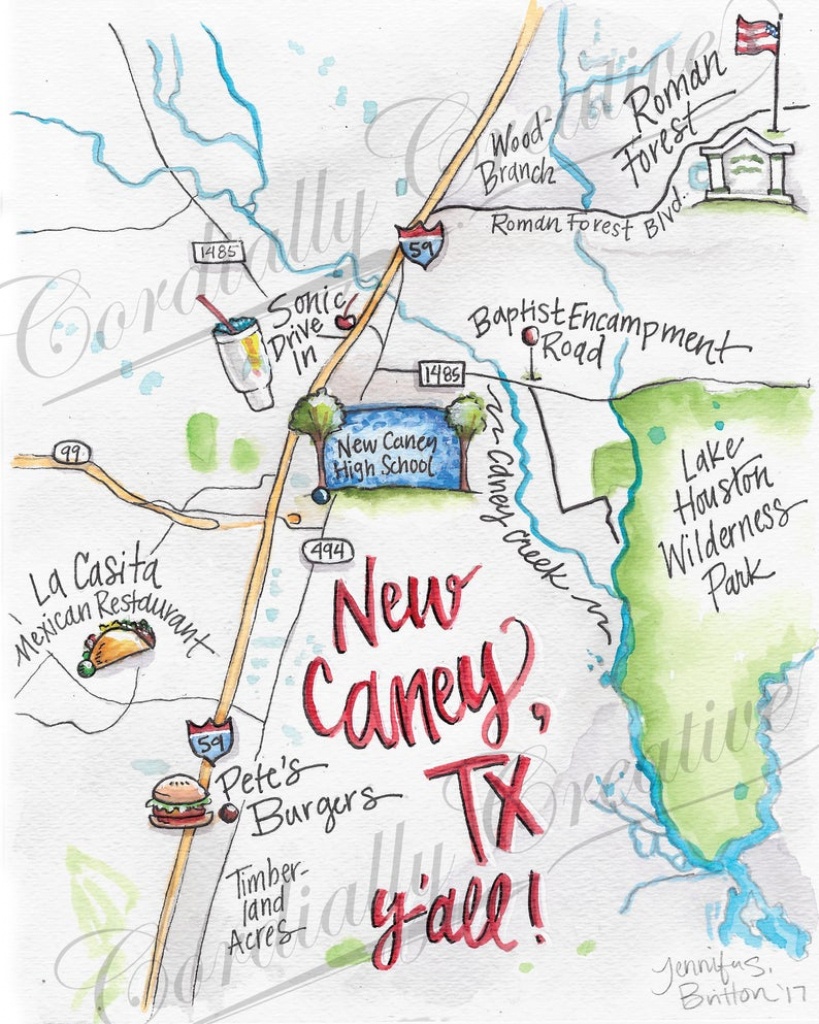 Roman
Forest
Wood-
Branch
Roman Forest Blvd.
59
1485
Sonic
Drive
In
Baptist Encampment
Road
1485
New Caney
High School
99
Caney Creek
Lake
Houston
Wilderness
Park
494
La Casita
Mexican Restaurant
New
Caney,
TX
y'all!
59
Pete's
Burgers
Timber-
land
Acres
Jennifer S.
Britton '17
Cordially Creative
Cordially Creative